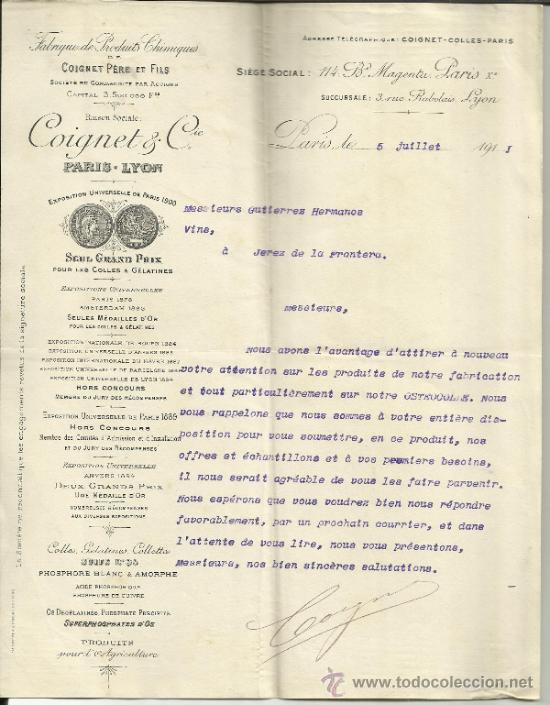 Fabrique de Produits Chimiques
DE
COIGNET PÈRE ET FILS
SOCIÉTÉ EN COMMANDITE PAR ACTIONS
Raison Sociale:
Coignet & Cie
PARIS-LYON
EXPOSITION UNIVERSELLE DE PARIS 1900
SEUL GRAND PRIX
POUR LES COLLES & GÉLATINES
EXPOSITIONS UNIVERSELLES
PARIS 1878
AMSTERDAM 1883
SEULES MÉDAILLES D'OR
POUR LES COLLES & GÉLATINES
EXPOSITION NATIONALE DE ROUEN 1884
EXPOSITION UNIVERSELLE D'ANVERS 1885
EXPOSITION INTERNATIONALE DU HAVRE 1887
EXPOSITION UNIVERSELLE DE BARCELONE 1888
EXPOSITION UNIVERSELLE DE LYON 1894
HORS CONCOURS
MEMBRE DU JURY DES RÉCOMPENSES
EXPOSITION UNIVERSELLE DE PARIS 1889
HORS CONCOURS
Membre des Comités d'Admission et d'Installation
ET DU JURY DES RÉCOMPENSES
EXPOSITION UNIVERSELLE
ANVERS 1894
DEUX GRANDS PRIX
UNE MÉDAILLE D'OR
NOMBREUSES RÉCOMPENSES
AUX DIVERSES EXPOSITIONS
Colles, Gélatines, Collettes
SUIFS D'OS
PHOSPHORE BLANC & AMORPHE
ACIDE PHOSPHORIQUE
PHOSPHURE DE CUIVRE
OS DÉGÉLATINÉS, PHOSPHATE PRÉCIPITÉ
SUPERPHOSPHATES D'OS
PRODUITS
pour l'Agriculture
ADRESSE TÉLÉGRAPHIQUE: COIGNET-COLLES-PARIS
SIÈGE SOCIAL: 114, Bd Magenta, Paris Xe
SUCCURSALE: 3, rue Rabelais, Lyon
Paris, le 5 juillet 1911
Messieurs Gutierrez Hermanos
Vins,
à Jerez de la Frontera.
Messieurs,
Nous avons l'avantage d'attirer à nouveau
votre attention sur les produits de notre fabrication
et tout particulièrement sur notre OSTEOCOLLE. Nous
vous rappelons que nous sommes à votre entière dis-
position pour vous soumettre, en ce produit, nos
offres et échantillons et à vos premiers besoins,
il nous serait agréable de vous les faire parvenir.
Nous espérons que vous voudrez bien nous répondre
favorablement, par un prochain courrier, et dans
l'attente de vous lire, nous vous présentons,
Messieurs, nos bien sincères salutations.
todocoleccion
www.todocoleccion.net